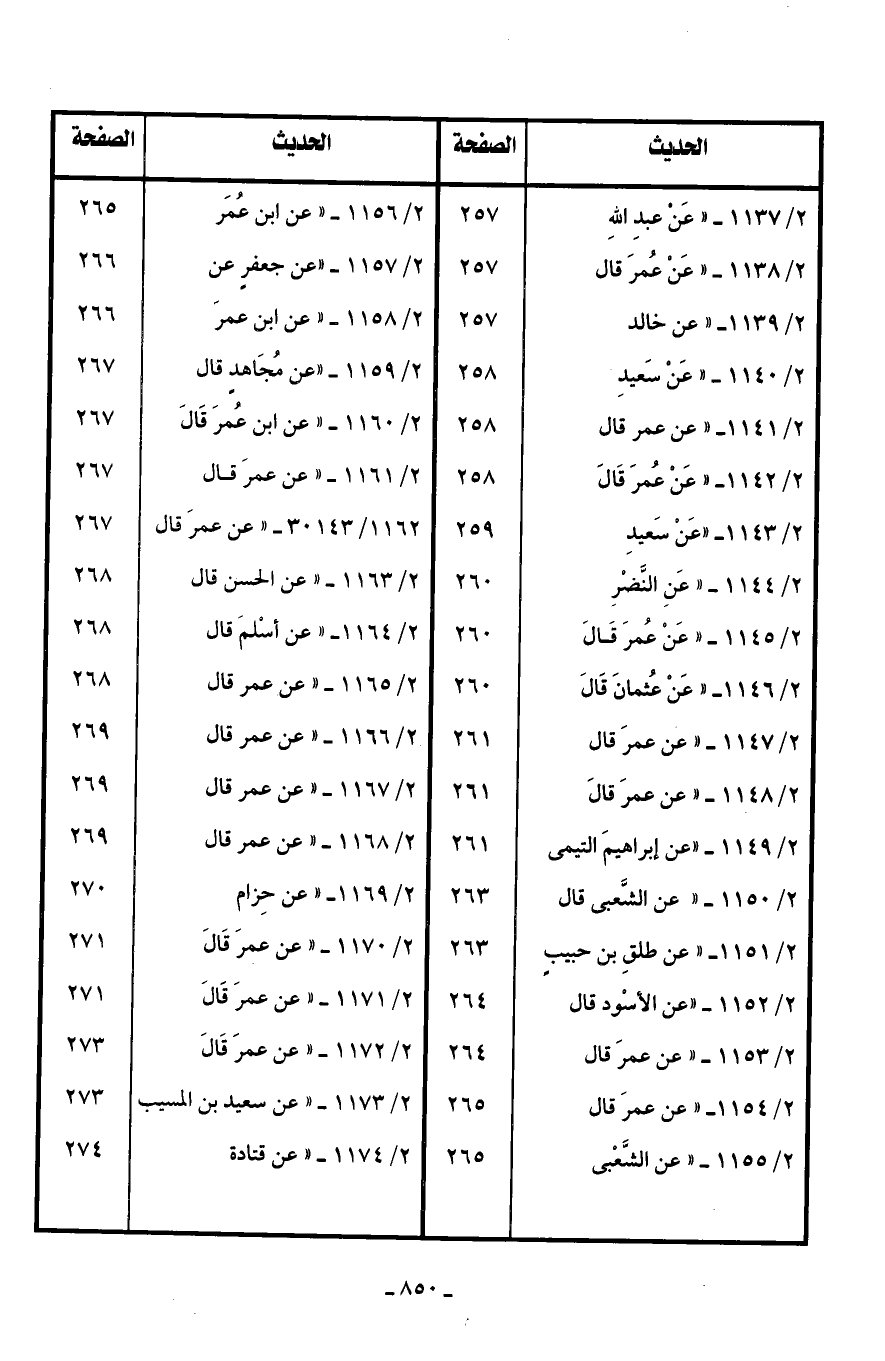 الحديث الصفحة الحديث الصفحة
٢/ ١١٣٧ ـ « عَنْ عبدِ اللهِ ٢٥٧ ٢/ ١١٥٦ ـ « عن ابن عُمَرَ ٢٦٥
٢/ ١١٣٨ ـ « عَنْ عُمرَ قال ٢٥٧ ٢/ ١١٥٧ ـ «عن جعفرٍ عن ٢٦٦
٢/ ١١٣٩ـ « عن خالد ٢٥٧ ٢/ ١١٥٨ ـ « عن ابن عمرَ ٢٦٦
٢/ ١١٤٠ ـ « عَنْ سَعيدِ ٢٥٨ ٢/ ١١٥٩ ـ «عن مُجَاهدٍ قال ٢٦٧
٢/ ١١٤١ـ « عن عمر قال ٢٥٨ ٢/ ١١٦٠ ـ « عن ابن عُمرَ قَالَ ٢٦٧
٢/ ١١٤٢ـ « عَنْ عُمرَ قَالَ ٢٥٨ ٢/ ١١٦١ ـ « عن عمرَ قـال ٢٦٧
٢/ ١١٤٣ـ «عَنْ سَعيدِ ٢٥٩ ١١٦٢/ ٣٠١٤٣ ـ « عن عمرَ قال ٢٦٧
٢/ ١١٤٤ ـ « عَنِ النَّضْرِ ٢٦٠ ٢/ ١١٦٣ ـ « عن الحسن قال ٢٦٨
٢/ ١١٤٥ ـ « عَنْ عُمرَ قَـالَ ٢٦٠ ٢/ ١١٦٤ـ « عن أسْلمَ قال ٢٦٨
٢/ ١١٤٦ـ « عَنْ عُثمانَ قَالَ ٢٦٠ ٢/ ١١٦٥ ـ « عن عمر قال ٢٦٨
٢/ ١١٤٧ ـ « عن عمرَ قال ٢٦١ ٢/ ١١٦٦ ـ « عن عمر قال ٢٦٩
٢/ ١١٤٨ ـ « عن عمرَ قالَ ٢٦١ ٢/ ١١٦٧ ـ « عن عمر قال ٢٦٩
٢/ ١١٤٩ ـ «عن إبراهيمَ التيمى ٢٦١ ٢/ ١١٦٨ ـ « عن عمر قال ٢٦٩
٢/ ١١٥٠ ـ « عن الشَّعبى قال ٢٦٣ ٢/ ١١٦٩ـ « عن حِزام ٢٧٠
٢/ ١١٥١ـ « عن طلقِ بن حبيبٍ ٢٦٣ ٢/ ١١٧٠ ـ « عن عمرَ قَالَ ٢٧١
٢/ ١١٥٢ ـ «عن الأسْود قال ٢٦٤ ٢/ ١١٧١ ـ « عن عمرَ قَالَ ٢٧١
٢/ ١١٥٣ ـ « عن عمرَ قال ٢٦٤ ٢/ ١١٧٢ ـ « عن عمرَ قَالَ ٢٧٣
٢/ ١١٥٤ـ « عن عمرَ قال ٢٦٥ ٢/ ١١٧٣ ـ « عن سعيد بن المسيب ٢٧٣
٢/ ١١٥٥ ـ « عن الشَّعْبى ٢٦٥ ٢/ ١١٧٤ ـ « عن قتادة ٢٧٤
ـ ٨٥٠ ـ